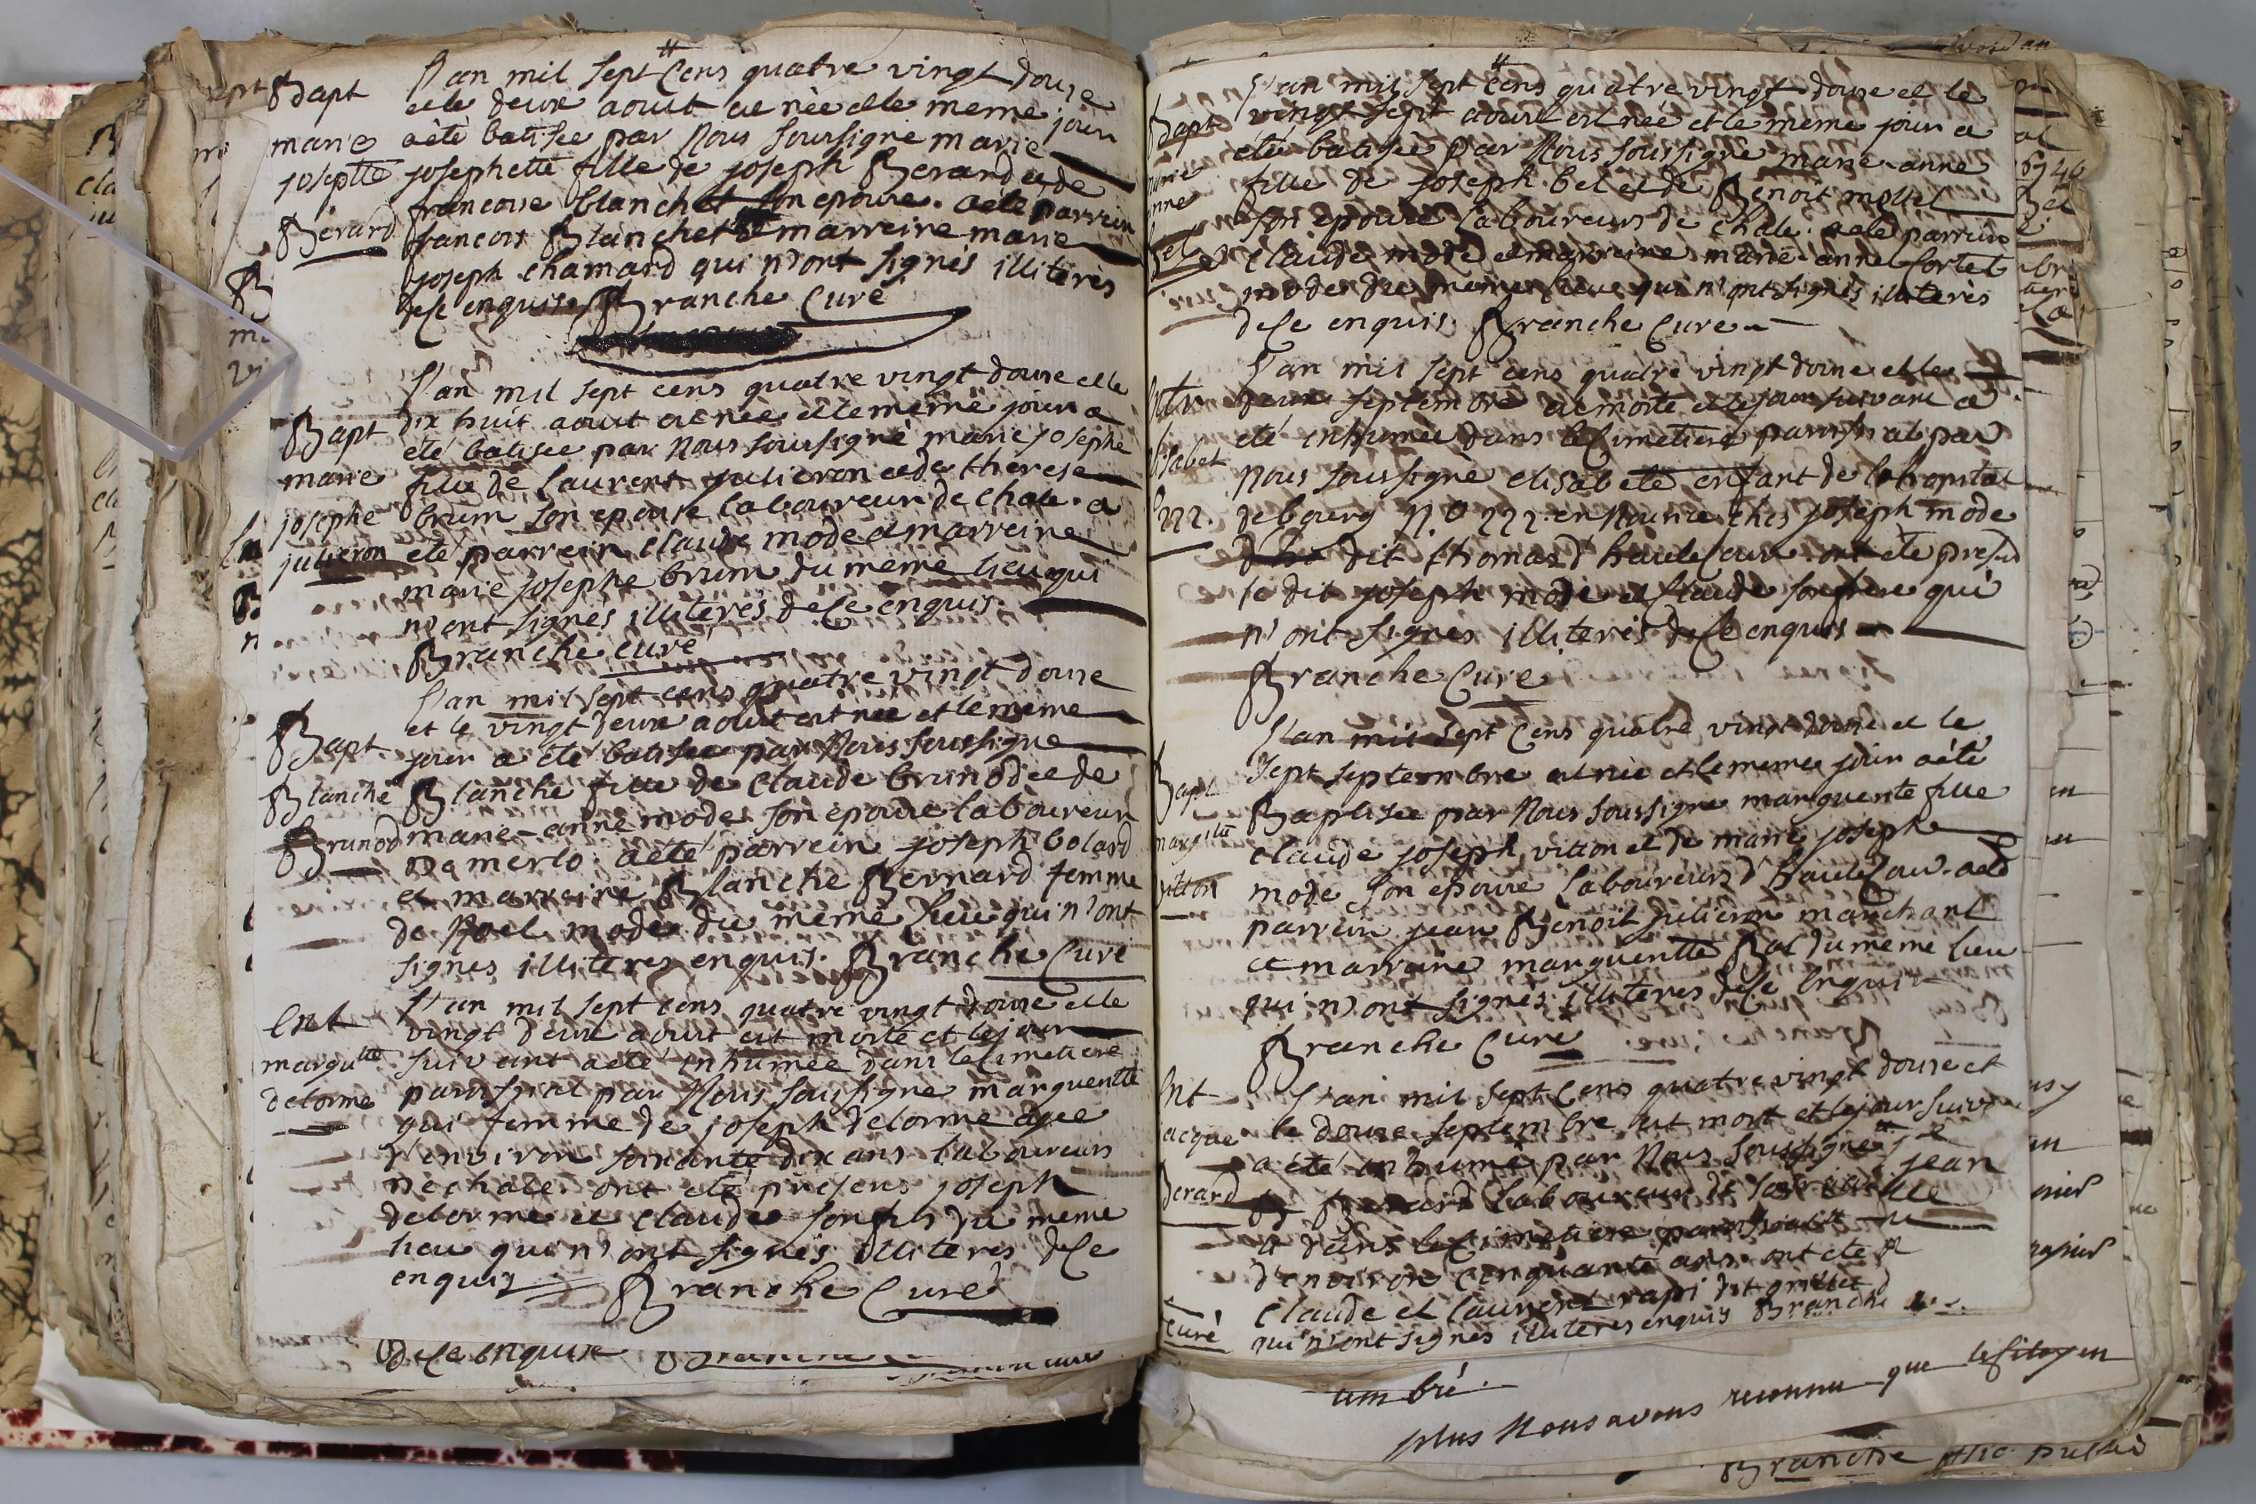 Bapt
marie
josephtte
Berard
L'an mil sept cens quatre vingt douse
et le deux aout est née et le meme jour
a été batisée par Nous soussigné marie
josephette fille de joseph Berard et de
francoise blanchet son epouse. a été parrein
francois Blanchet et marreine marie
joseph chamard qui n'ont signés illiterès
de ce enquis Branche Curé
Bapt
marie
josephe
julieron
L'an mil sept cens quatre vingt douse et le
dix huit aout est née et le meme jour a
été batisée par Nous soussigné marie josephe
fille de laurent julieron et de therese
brum son epouse laboureur de chale. a
eté parrein claude mode et marreine
marie josephe brum du meme lieu qui
n'ont signés illiterés de ce enquis.
Branche curé
Bapt
Blanche
Brunod
L'an mil sept cens quatre vingt douse
et le vingt deux aout est née et le meme
jour a été batisée par Nous soussigné
Blanche fille de claude brunod et de
marie-anne mode son epouse laboureur
De merlo. a été parrein joseph bolard
et marreine Blanche Bernard femme
de Noel mode du meme lieu qui n'ont
signés illiteres enquis. Branche Curé
Ent
margutte
delorme
L'an mil sept cens quatre vingt douse et le
vingt deux aout est morte et le jour
suivant a été inhumée dans le cimetiere
paroissial par Nous soussigné marguentte
qui femme de joseph delorme agee
d'environ soixante dix ans laboureurs
De chale. ont eté presens joseph
delorme et claude son fils du meme
lieu qui n'ont signés illiteres de ce
enquis Branche Curé
de ce enquis
Bapt
marie
anne
bel
L'an mil sept cens quatre vingt douse et le
vingt sept aout est née et le meme jour a
été batisée par Nous soussigné marie-anne
fille de joseph bel et de Benoit mollet
son epouse laboureurs de chale. a été parrein
claude mode et marreine marie anne Cortet
mode du meme lieu qui n'ont signés illiterès
de ce enquis Branche Cure
Entr
lisabet
222.
L'an mil sept cens quatre vingt douse et le
deux septembre est morte et le jour suivant a
eté inhumée dans le cimetiere paroissial par
Nous soussigné elisabete enfant de l'hopital
de bourg N.o 222. en Nourice ches joseph mode
dit thomas d'hautecour. ont ete presens
le dit joseph mode et claude son frere qui
n'ont signés illiteres de ce enquis
Branche Cure
Bapt
margtte
vitton
L'an mil sept cens quatre vingt douse et le
sept septembre est née et le meme jour a été
Baptisée par Nous soussigné marguerite fille
claude joseph vitton et de marie joseph
mode son epouse laboureurs d'hautecour. a été
parrein jean Benoit julieron marchant
et marraine marguentte Bal du meme lieu
qui n'ont signés illiteres de ce enquis
Branche Cure
Ent
acque
Berard
L'an mil sept cens quatre vingt douse et
le douse septembre est mort et le jour suiv
a été inhumé par Nous soussigné
jean
Berard laboureur
dans le cimetiere paroissial
d'environ cinquante ans. ont eté
claude et laurent rapi dit grillet
qui n'ont signés illiteres enquis Branche
curé
plus Nous avons reconnu que le citoyen
Branche